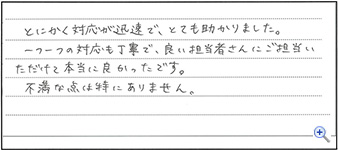 とにかく対応が迅速で、とても助かりました。
一つ一つの対応も丁寧で、良い担当者さんにご担当い
ただけて本当に良かったです。
不満な点は特にありません。